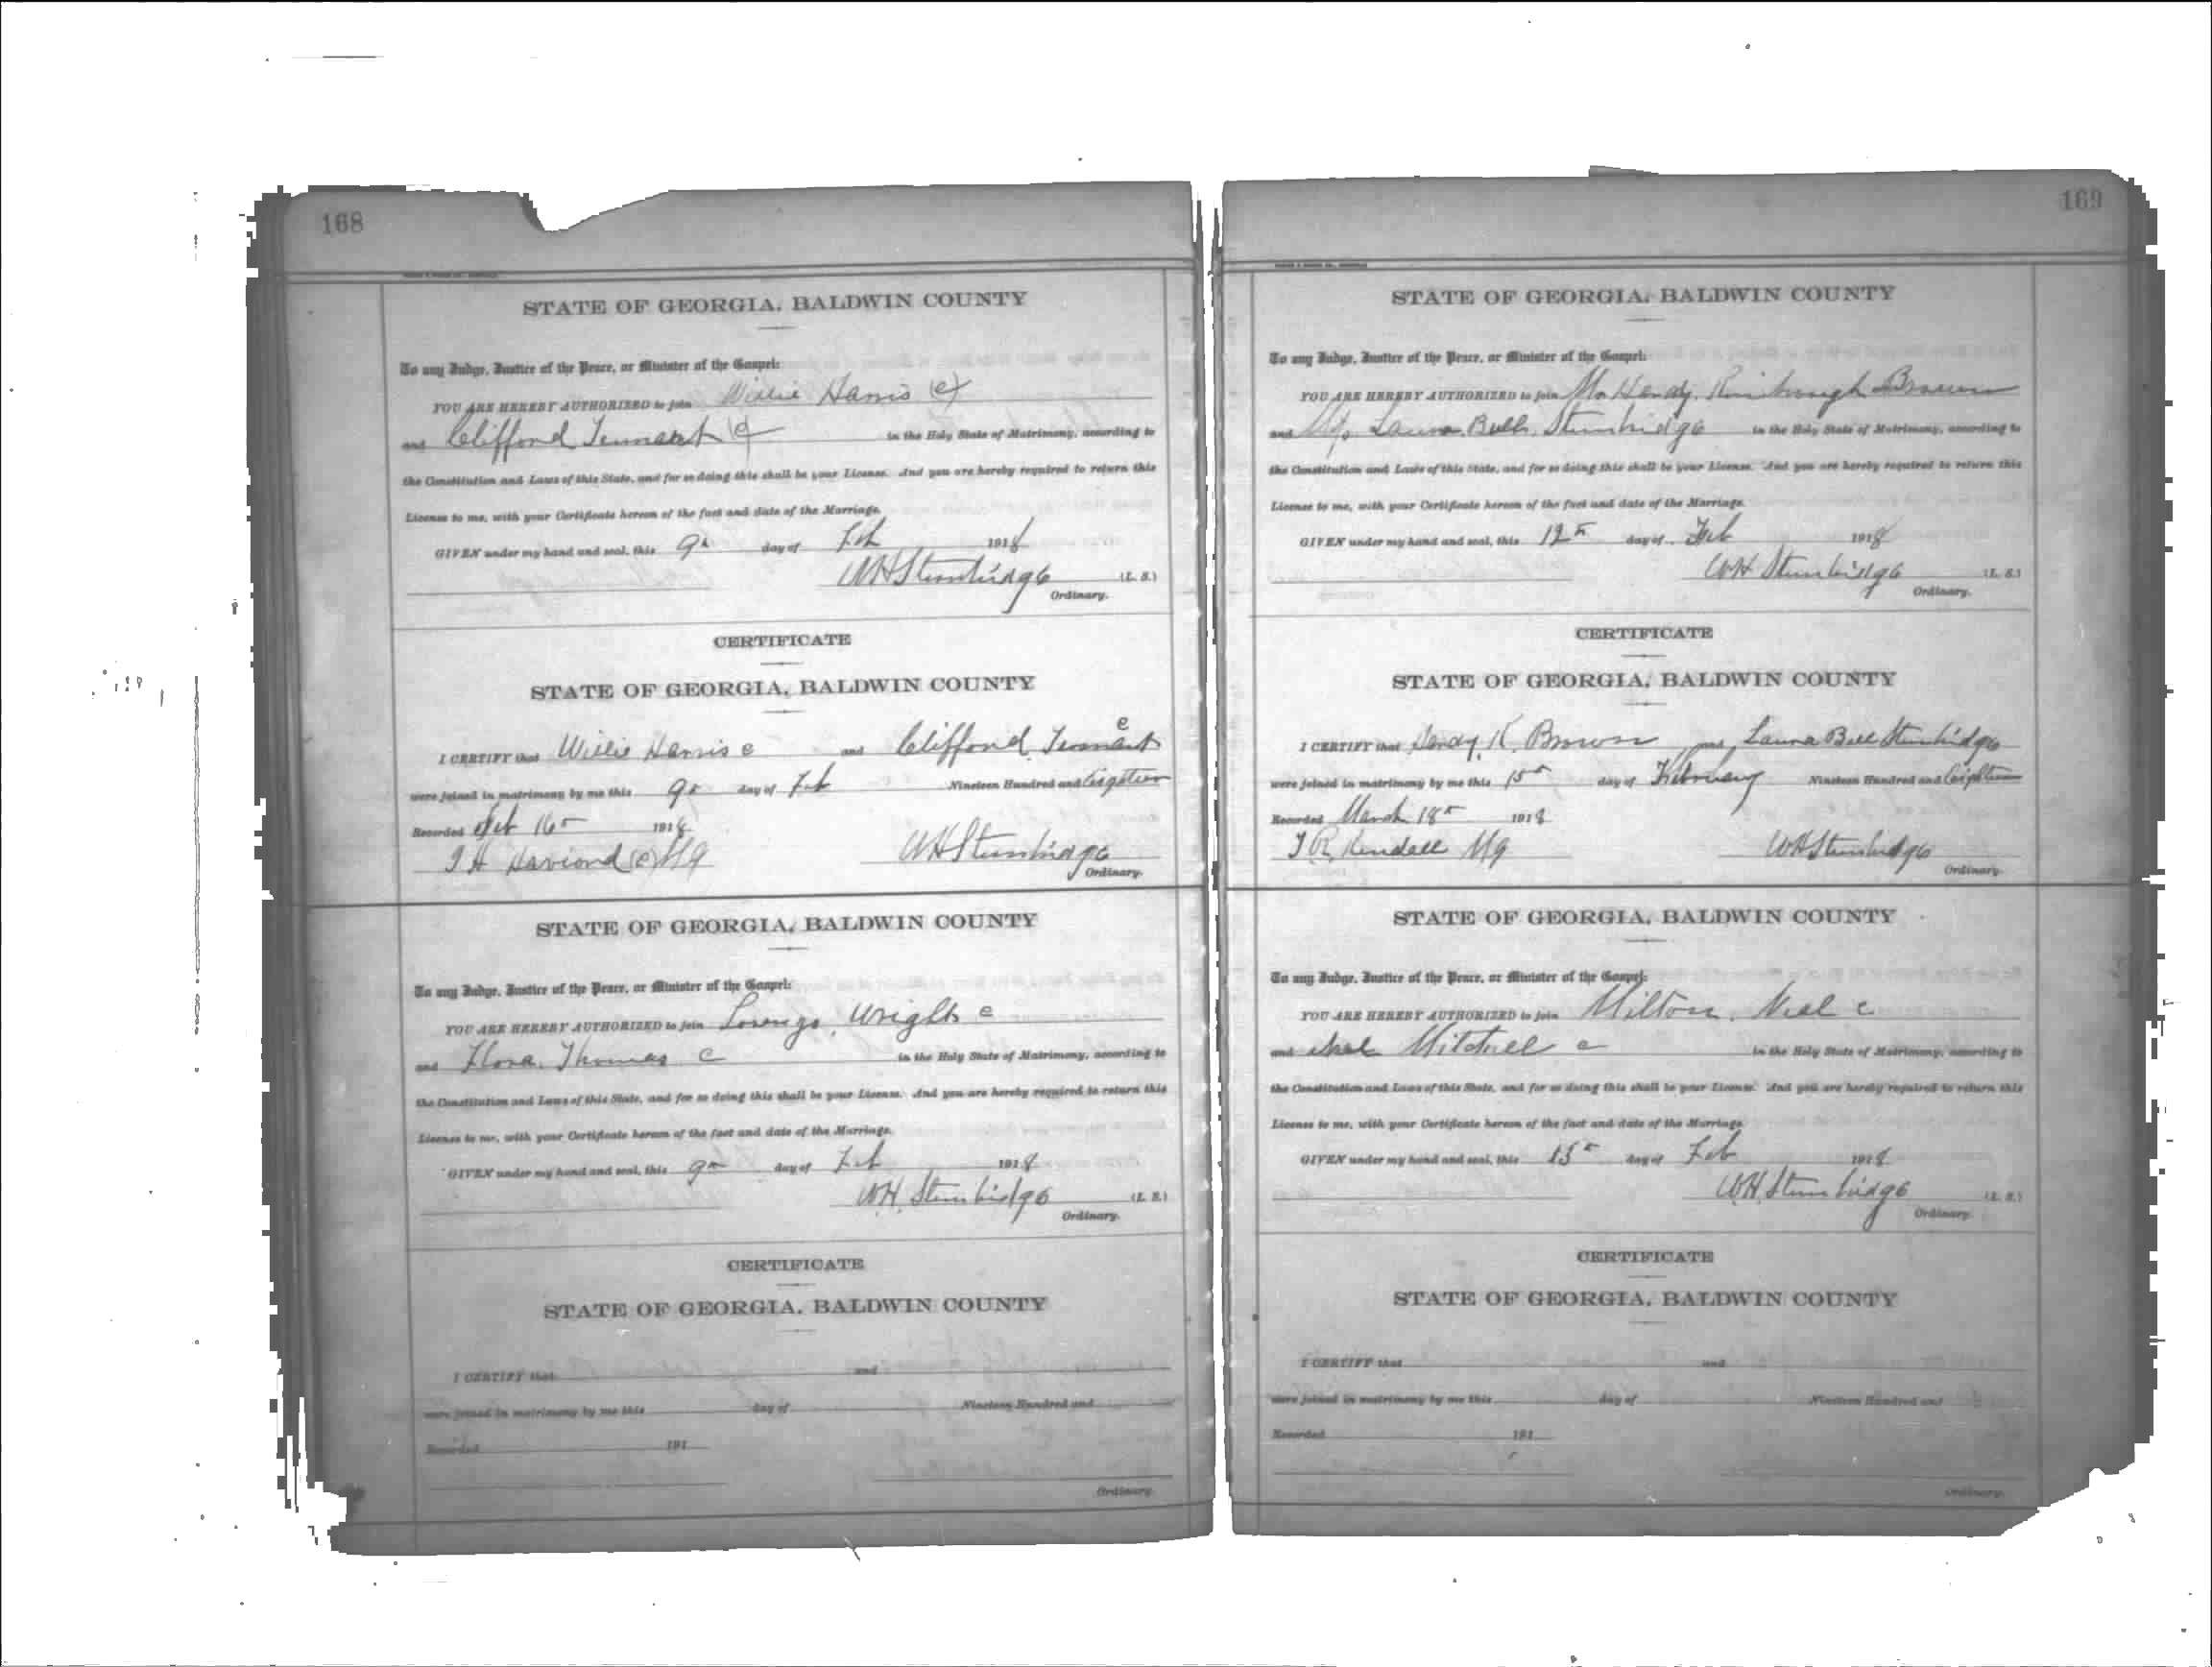 168
STATE OF GEORGIA, BALDWIN COUNTY
To any Judge, Justice of the Peace, or Minister of the Gospel:
YOU ARE HEREBY AUTHORIZED to join Willie Harris (c)
and Clifford Tennant (c) in the Holy State of Matrimony, according to
the Constitution and Laws of this State, and for so doing this shall be your License. And you are hereby required to return this
License to me, with your Certificate hereon of the fact and date of the Marriage.
GIVEN under my hand and seal, this 9th day of Feb 1918
WH Stembridge (L. S.)
Ordinary.
CERTIFICATE
STATE OF GEORGIA, BALDWIN COUNTY
I CERTIFY that Willie Harris c and Clifford Tennant c
were joined in matrimony by me this 9th day of Feb Nineteen Hundred and Eighteen
Recorded Feb 16th 1918
(c) MG WH Stembridge
Ordinary.
STATE OF GEORGIA, BALDWIN COUNTY
To any Judge, Justice of the Peace, or Minister of the Gospel:
YOU ARE HEREBY AUTHORIZED to join Lorenzo Wright c
and Flora Thomas c in the Holy State of Matrimony, according to
the Constitution and Laws of this State, and for so doing this shall be your License. And you are hereby required to return this
License to me, with your Certificate hereon of the fact and date of the Marriage.
GIVEN under my hand and seal, this 9th day of Feb 1918
W.H. Stembridge (L. S.)
Ordinary.
CERTIFICATE
STATE OF GEORGIA, BALDWIN COUNTY
I CERTIFY that and
were joined in matrimony by me this day of Nineteen Hundred and
Recorded 191
Ordinary.
169
STATE OF GEORGIA, BALDWIN COUNTY
To any Judge, Justice of the Peace, or Minister of the Gospel:
YOU ARE HEREBY AUTHORIZED to join Mr Hendy Kimbrough Brown
and Laura Belle Stembridge in the Holy State of Matrimony, according to
the Constitution and Laws of this State, and for so doing this shall be your License. And you are hereby required to return this
License to me, with your Certificate hereon of the fact and date of the Marriage.
GIVEN under my hand and seal, this 12th day of Feb 1918
WH Stembridge (L. S.)
Ordinary.
CERTIFICATE
STATE OF GEORGIA, BALDWIN COUNTY
I CERTIFY that Hendy K. Brown and Laura Bell Stembridge
were joined in matrimony by me this 15th day of February Nineteen Hundred and Eighteen
Recorded March 18th 1918
T.R. Kendall MG WH Stembridge
Ordinary.
STATE OF GEORGIA, BALDWIN COUNTY
To any Judge, Justice of the Peace, or Minister of the Gospel:
YOU ARE HEREBY AUTHORIZED to join Milton Neal c
and Mitchell c in the Holy State of Matrimony, according to
the Constitution and Laws of this State, and for so doing this shall be your License. And you are hereby required to return this
License to me, with your Certificate hereon of the fact and date of the Marriage.
GIVEN under my hand and seal, this 15th day of Feb 1918
W.H. Stembridge (L. S.)
Ordinary.
CERTIFICATE
STATE OF GEORGIA, BALDWIN COUNTY
I CERTIFY that and
were joined in matrimony by me this day of Nineteen Hundred and
Recorded 191
Ordinary.